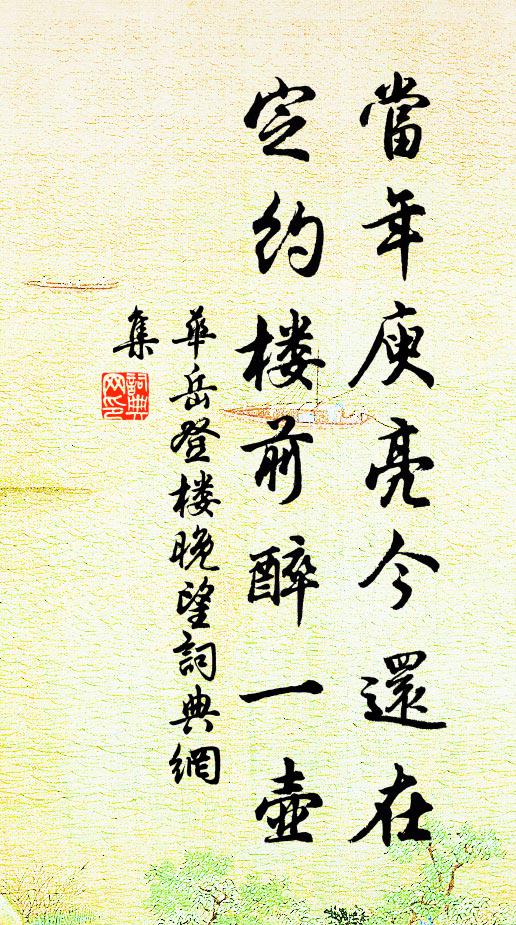 當年庾亮今還在
定約楼前醉一壺
華岳登楼晚望詞典網
集
詞典
网印